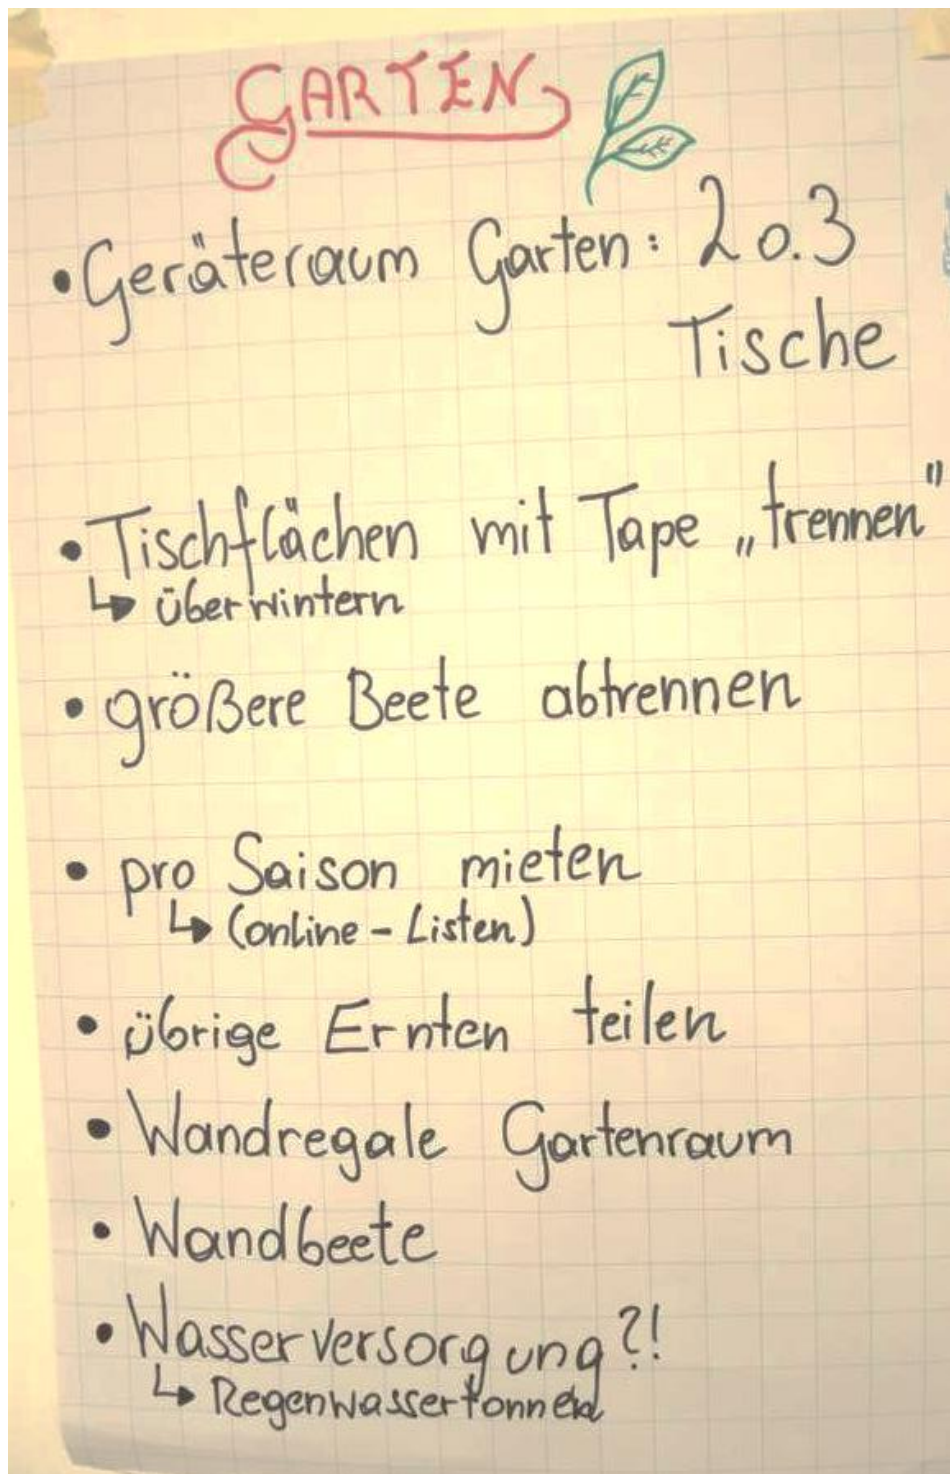 GARTEN
• Geräteraum Garten: 2 o. 3
Tische
• Tischflächen mit Tape „trennen"
↳ überwintern
• größere Beete abtrennen
• pro Saison mieten
↳ (online - Listen)
• übrige Ernten teilen
• Wandregale Gartenraum
• Wandbeete
• Wasserversorgung?!
↳ Regenwassertonnen